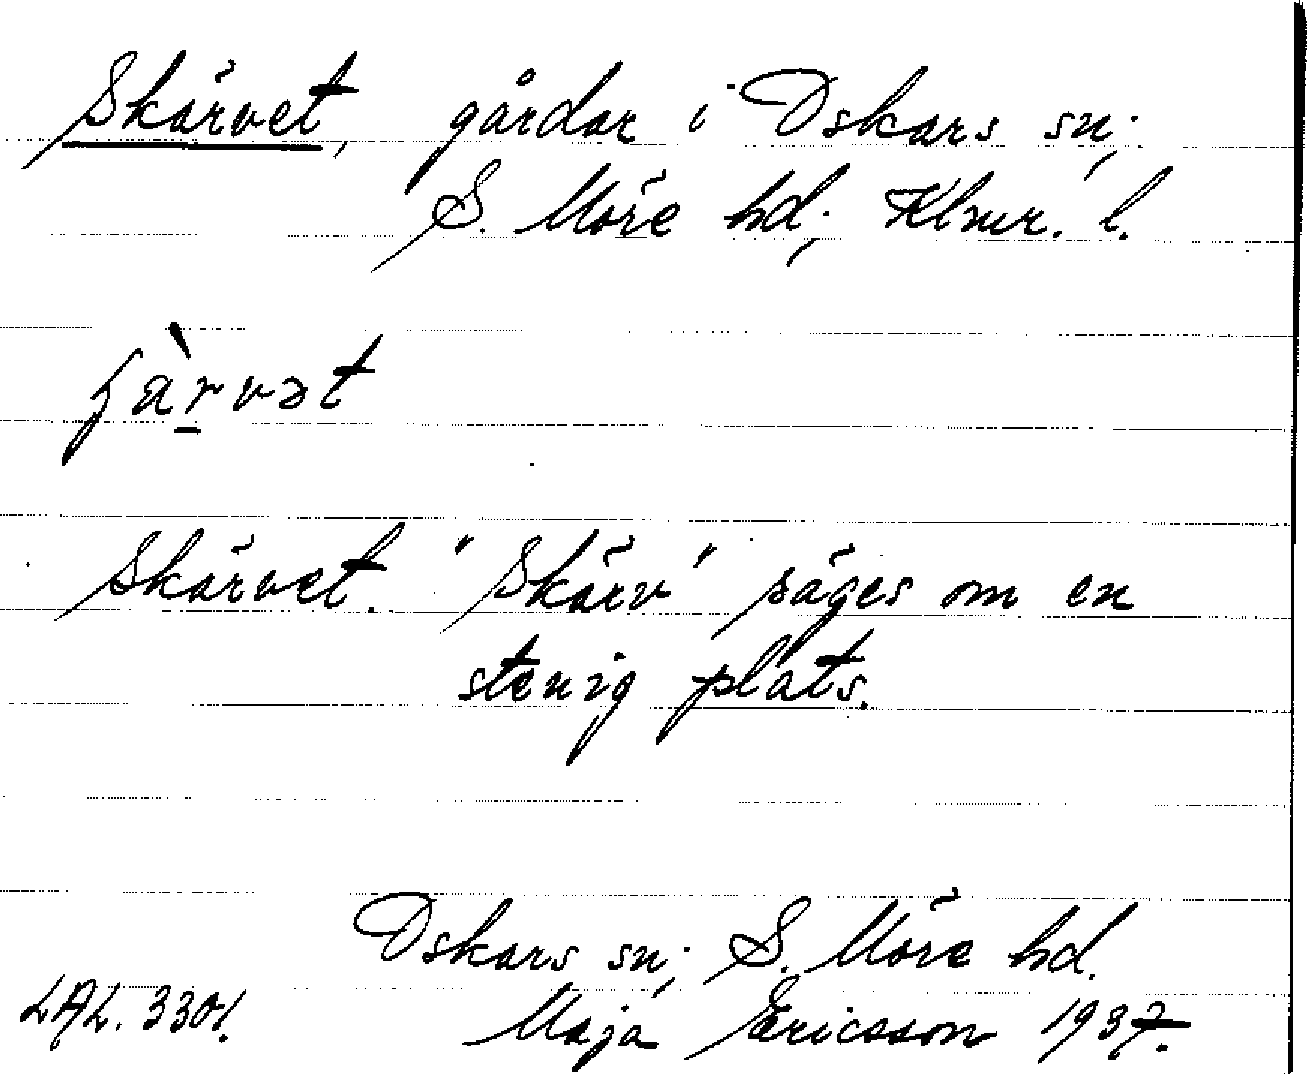 Skärvet, gårdar i Oskars sn;
S. Möre hd; Klmr. l.
Skärvet. "Skärv" säges om en
stenig plats.
Oskars sn; S. Möre hd.
LAL. 3301. Maja Ericsson 1937.